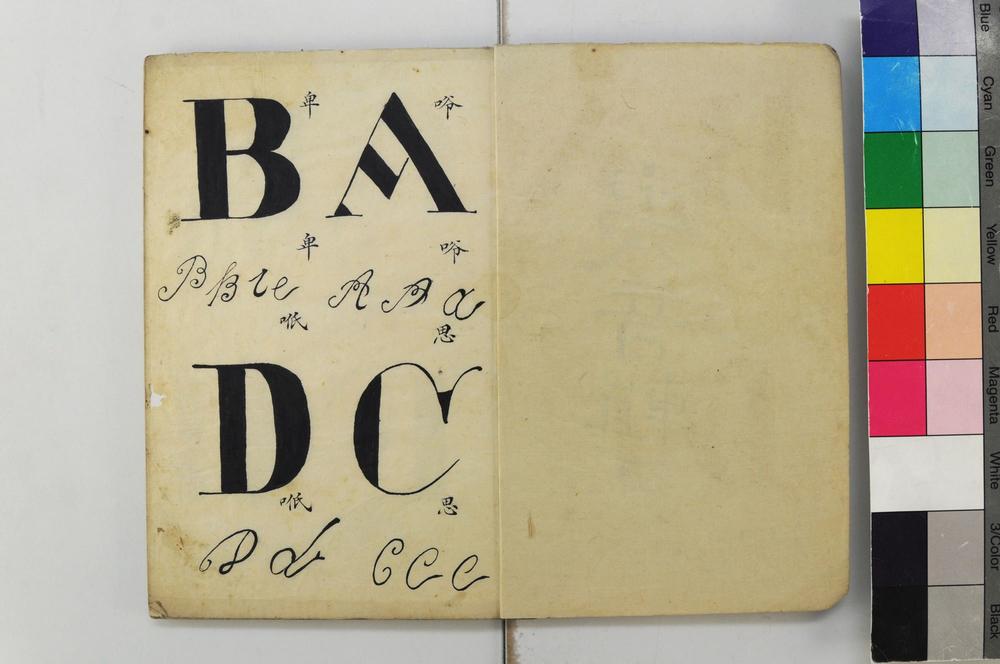 B 卑 A 㕷
卑 㕷
B B b e A A a
D 㗳 C 思
㗳 思
D d C C c
Blue
Cyan
Green
Yellow
Red
Magenta
White
3/Color
Black